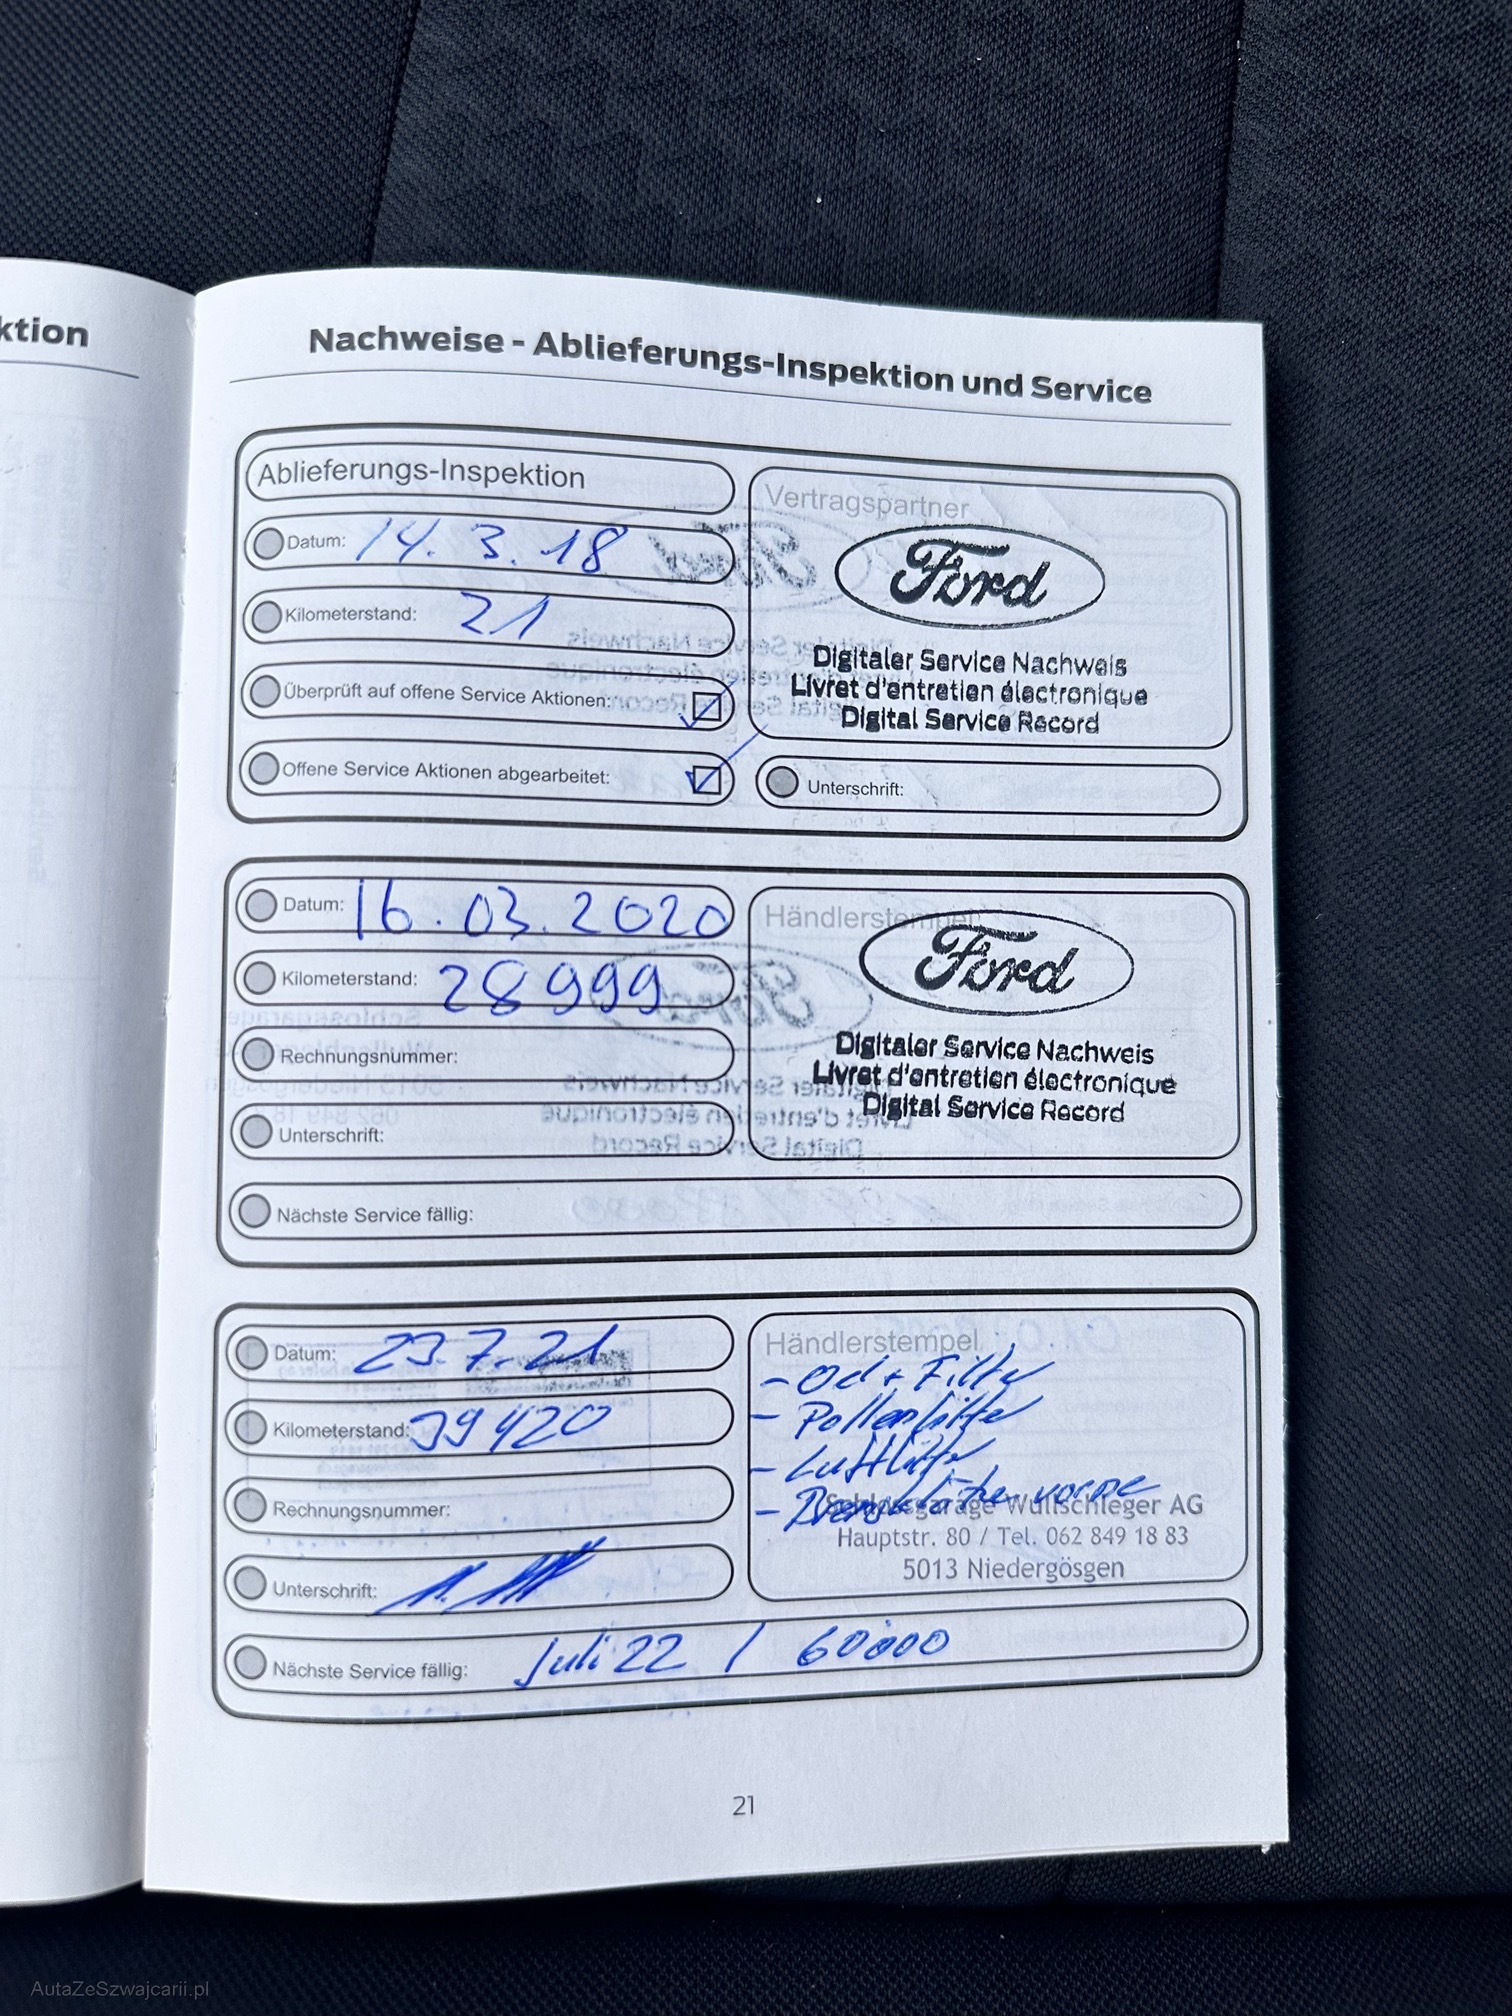 ktion
Nachweise - Ablieferungs-Inspektion und Service
Ablieferungs-Inspektion
Datum: 14. 3. 18
Kilometerstand: 21
Überprüft auf offene Service Aktionen:
Offene Service Aktionen abgearbeitet:
Vertragspartner
Ford
Digitaler Service Nachweis
Livret d'entretien électronique
Digital Service Record
Unterschrift:
Datum: 16.03.2020
Kilometerstand: 28999
Rechnungsnummer:
Unterschrift:
Händlerstempel
Ford
Digitaler Service Nachweis
Livret d'entretien électronique
Digital Service Record
Nächste Service fällig:
Datum: 23.7.21
Kilometerstand: 39420
Rechnungsnummer:
Unterschrift:
Händlerstempel
- Oel + Filter
- Pollenfilter
- Luftfilter
- Bremsklötze vorne
Schlossgarage Wullschleger AG
Hauptstr. 80 / Tel. 062 849 18 83
5013 Niedergösgen
Nächste Service fällig: Juli 22 / 60000
21
AutaZeSzwajcarii.pl